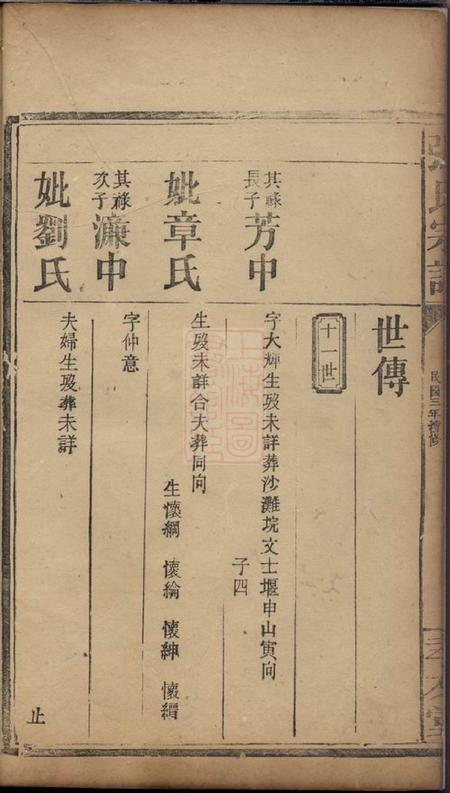 世傳
十一世
其祿
長子
芳中
字大輝生歿未詳葬沙灘垸文士堰申山寅向
子四
妣章氏
生歿未詳合夫葬同向
生懷綱 懷綸 懷紳 懷縉
其祿
次子
濂中
字仲意
妣劉氏
夫婦生歿葬未詳
止
民國三年揩修